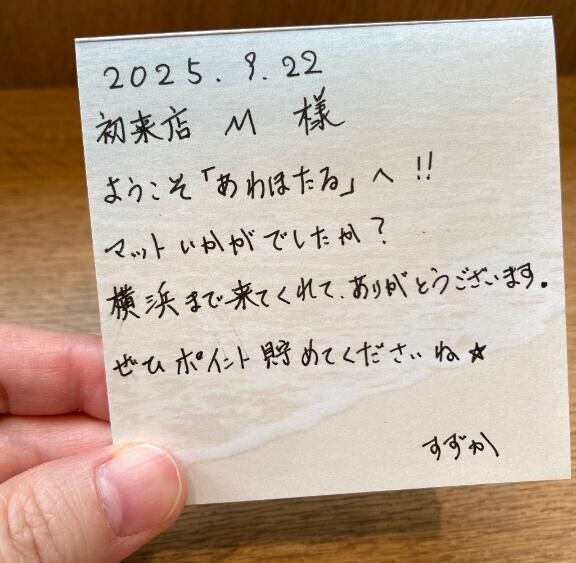 2025.9.22
初来店 M 様
ようこそ「あわほたる」へ!!
マットいかがでしたか?
横浜まで来てくれて、ありがとうございます。
ぜひポイント貯めてくださいね★
すずか